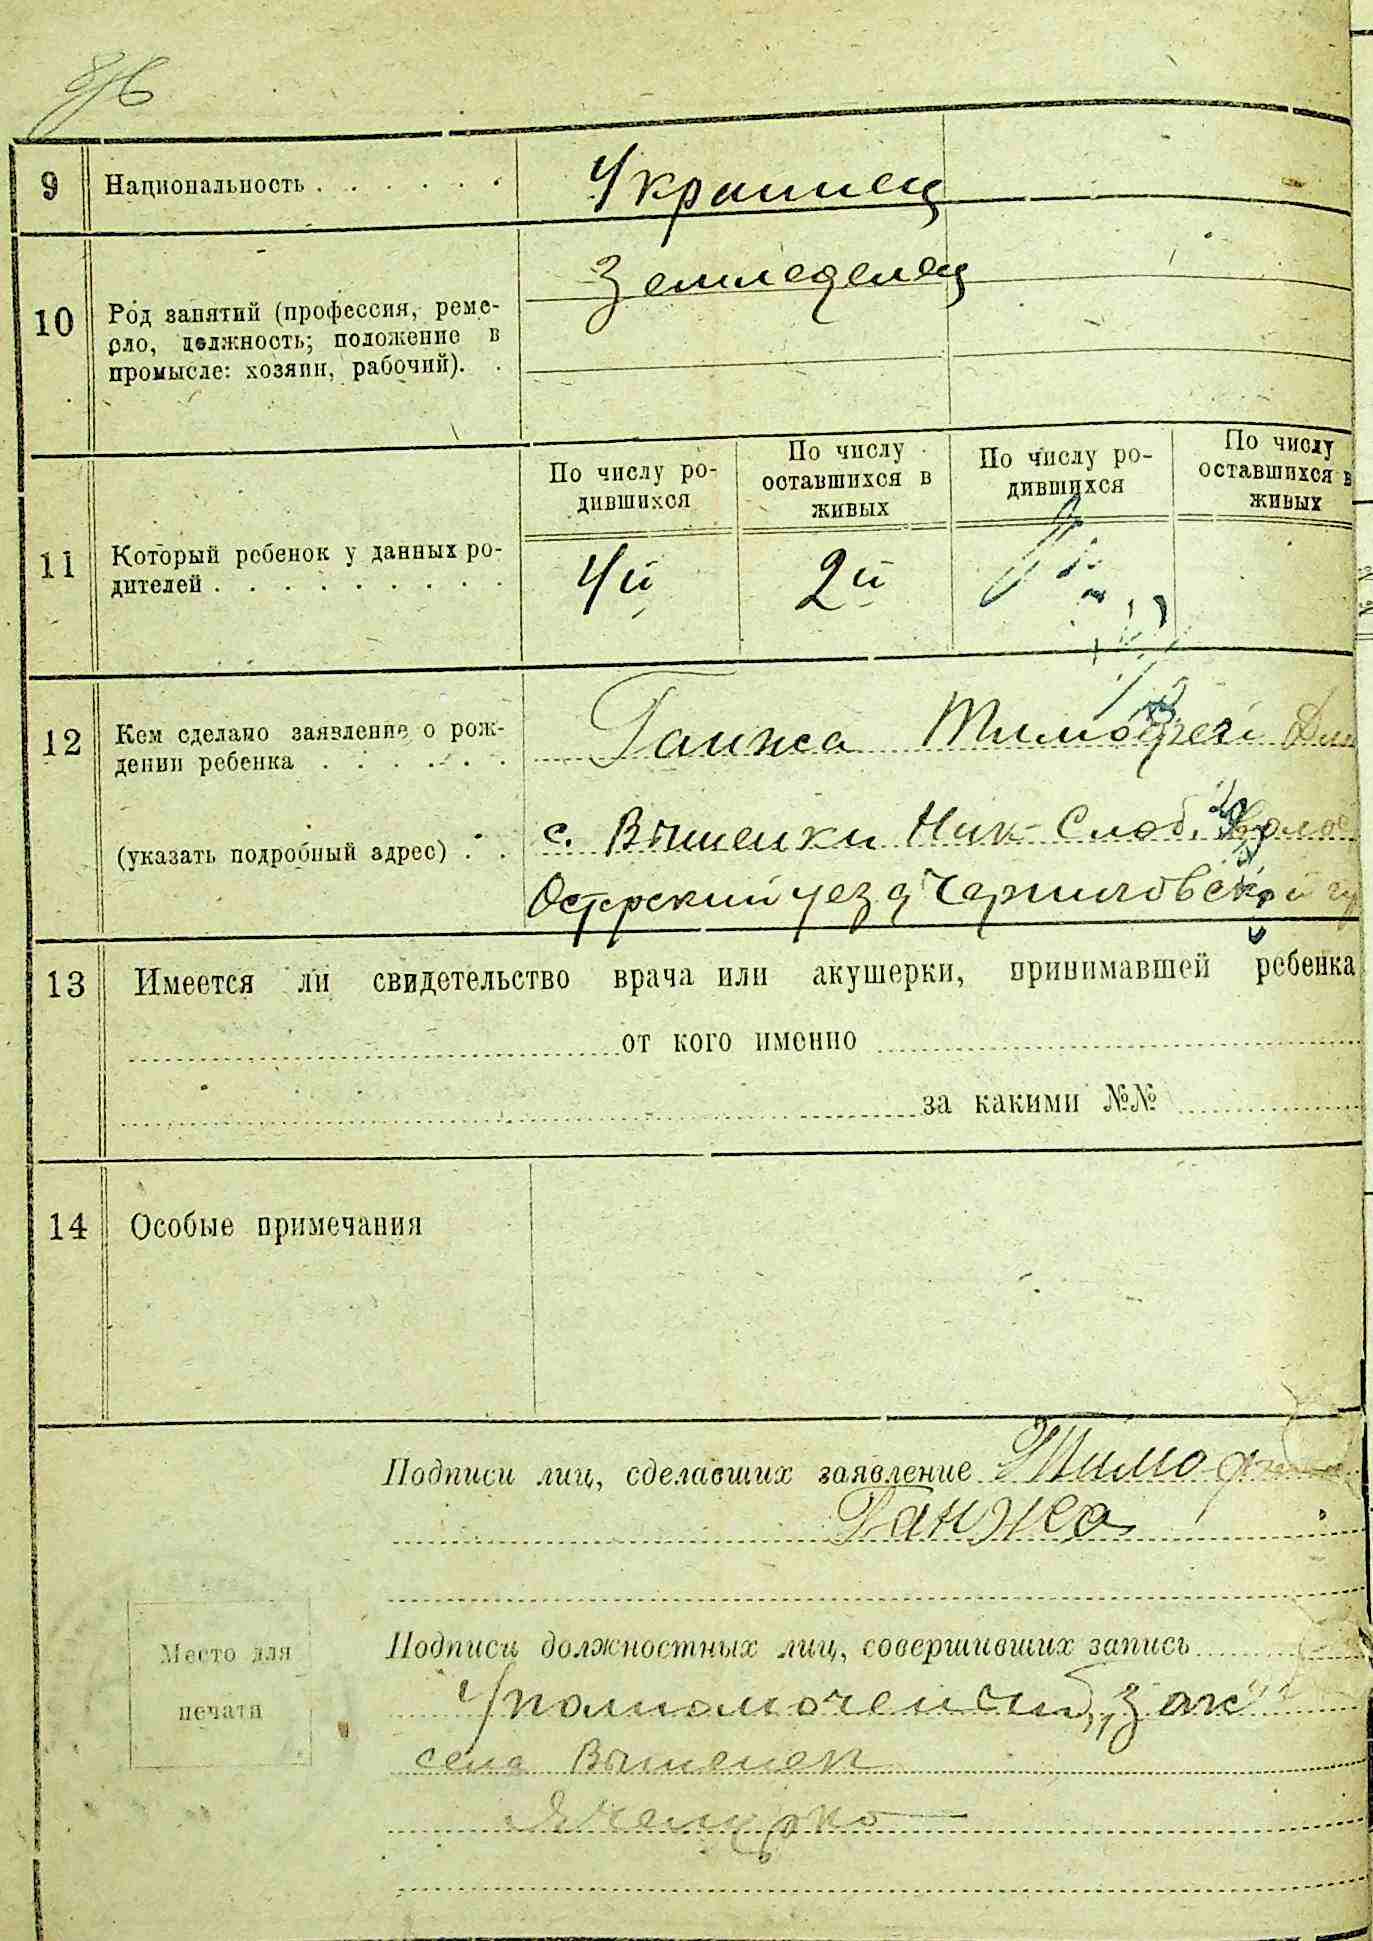 9 Национальность . . . . . . Украинец
10 Род занятий (профессия, реме-
сло, должность; положение в
промысле: хозяин, рабочий). .
Земледелец
По числу ро-
дившихся
По числу
оставшихся в
живых
По числу ро-
дившихся
По числу
оставшихся в
живых
11 Который ребенок у данных ро-
дителей . . . . . . . . .
4й 2й
12 Кем сделано заявление о рож-
дении ребенка . . . . . .
Ганжа Тимофей
(указать подробный адрес) . .
с. Вышеньки Ник-Слоб.
Остерский уезд Черниговской
13 Имеется ли свидетельство врача или акушерки, принимавшей ребенка
от кого именно
за какими №№
14 Особые примечания
Подписи лиц, сделавших заявление Тимоф
Ганжа
Подписи должностных лиц, совершивших запись
Место для
печати
Уполномоченный „Загс"
села Вышенек